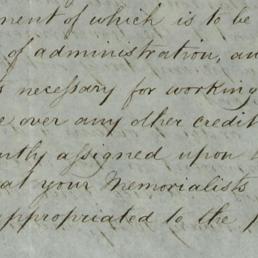 ment of which is to be
of administration, an
s necessary for working
e over any other credit
ntly assigned upon
at your Memorialists
appropriated to the